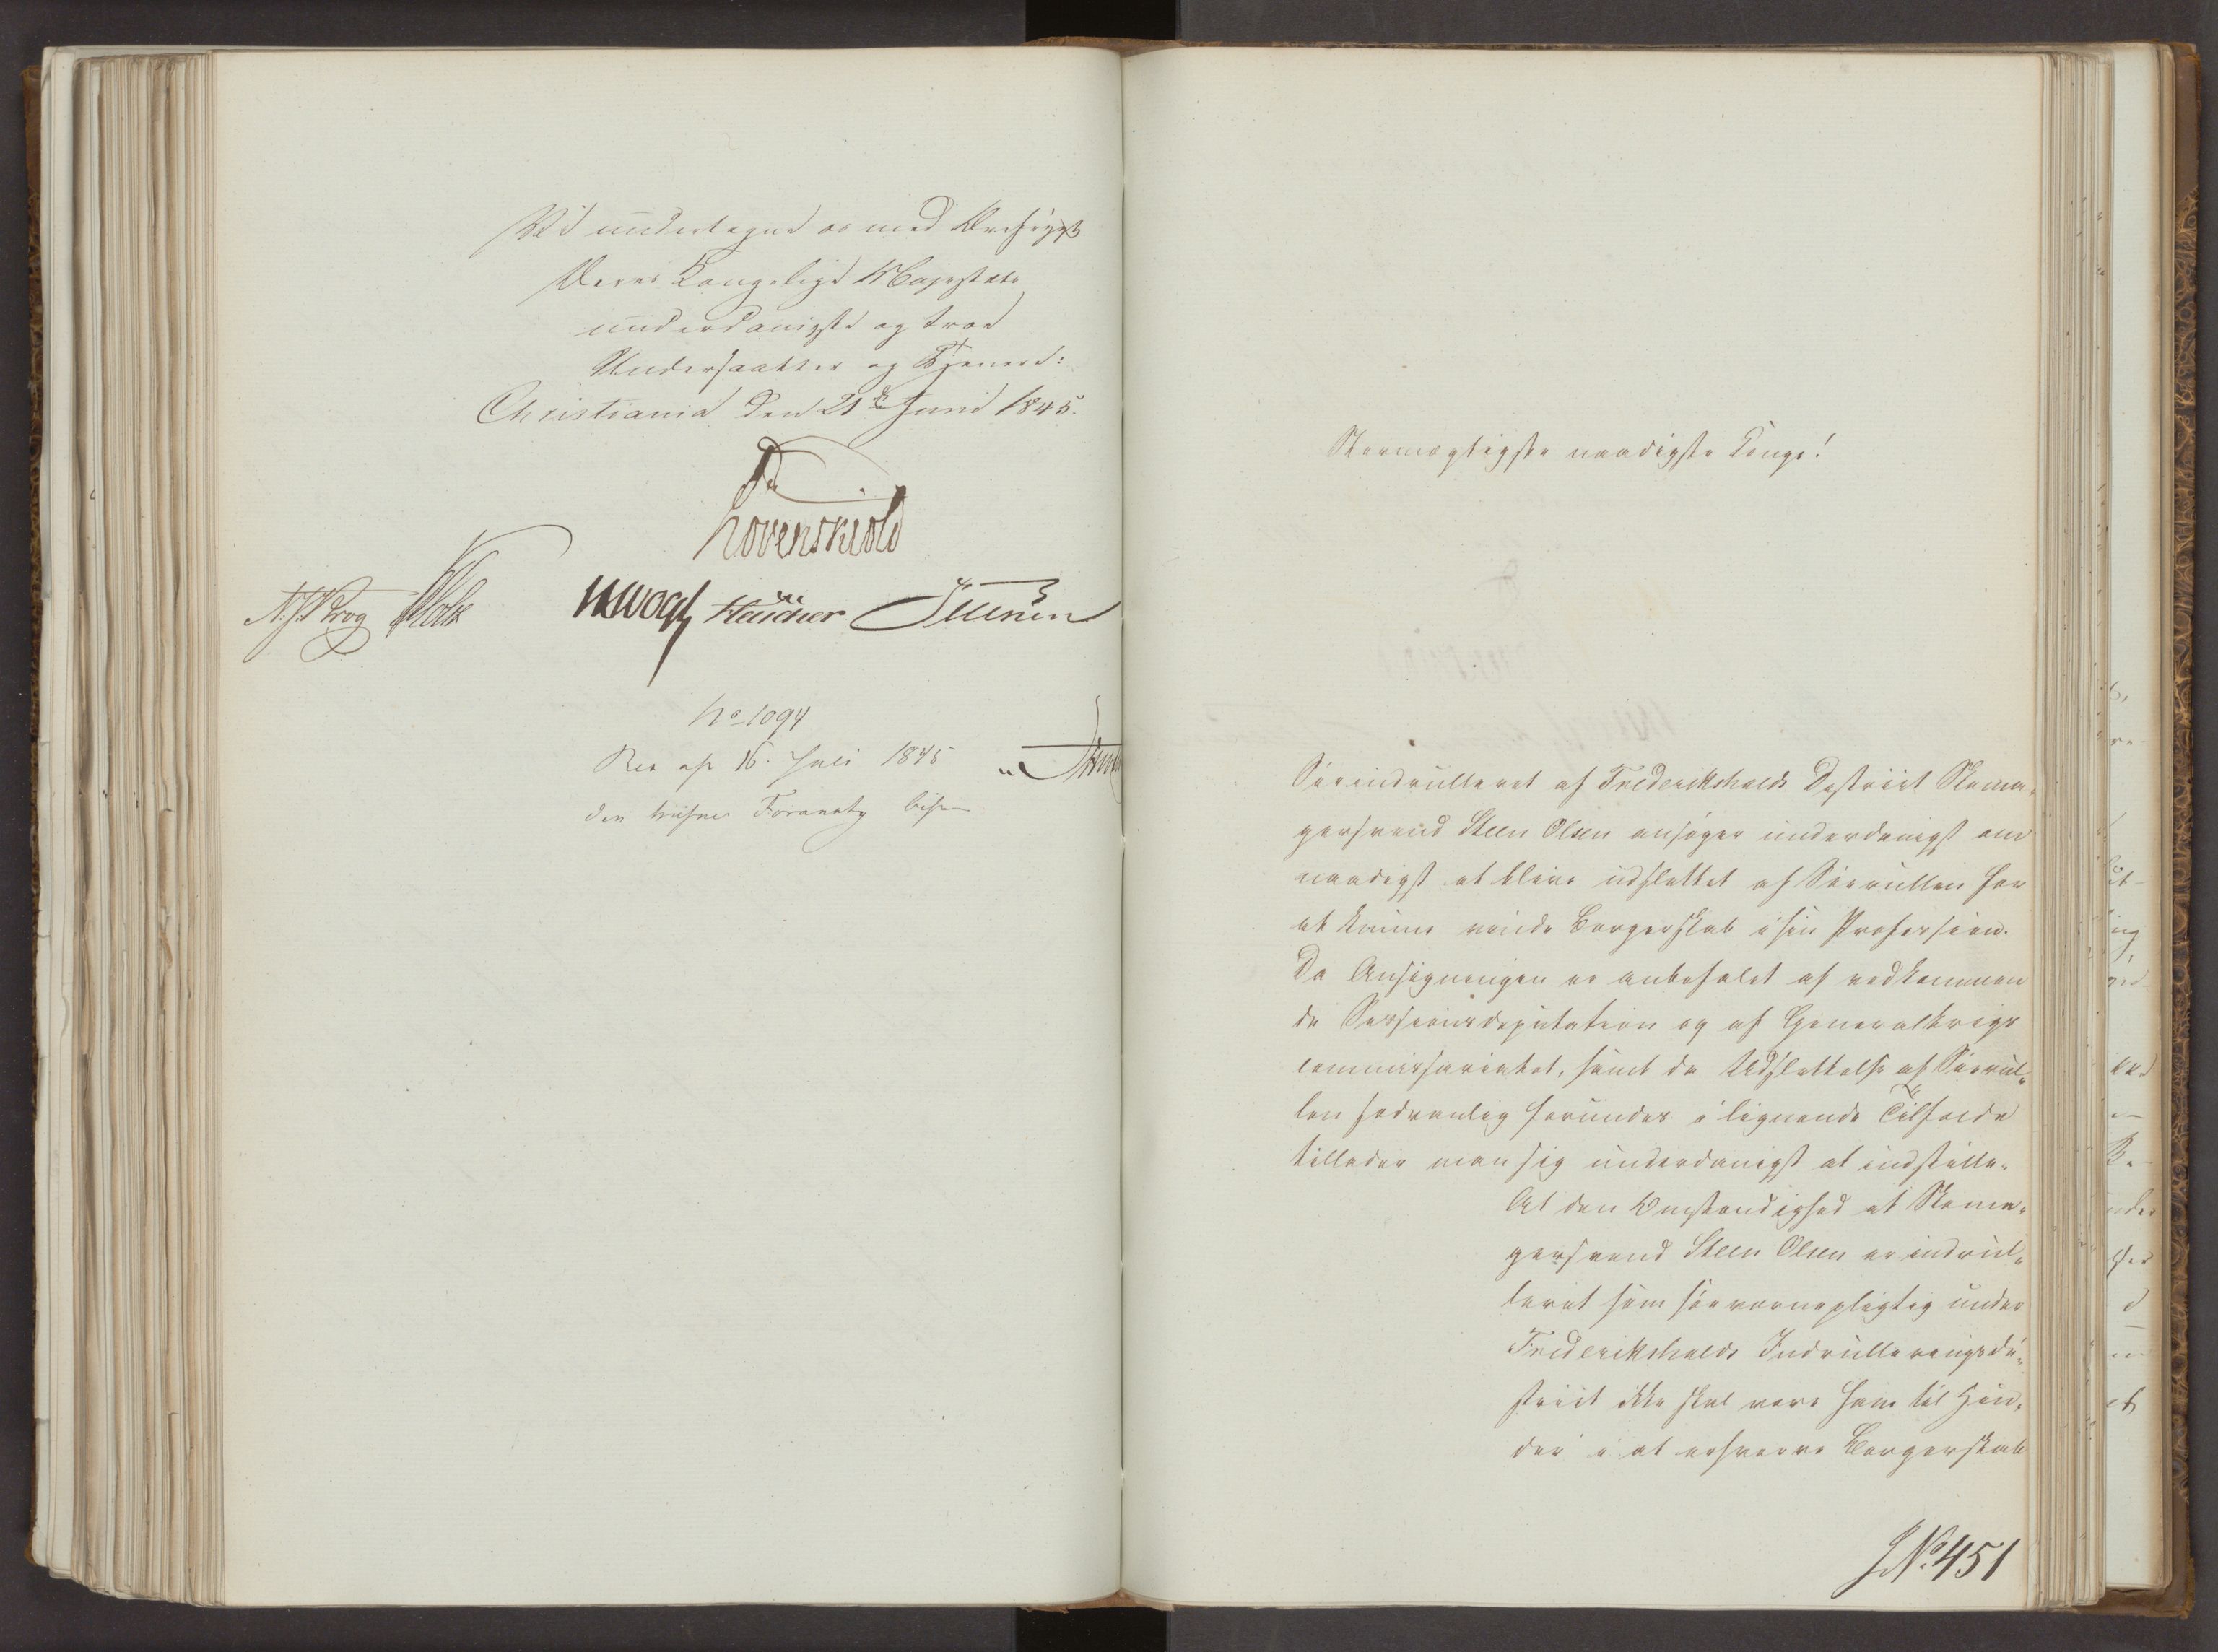 Vi undertegne os med Ærefrygt
Deres Kongelige Majestæts
underdanigste og troe
Undersaatter og Tjenere:
Christiania den 21de Juni 1845.
Løvenskiold
N. J. Krog Holst
Vogt
No 1094
Res af 16. Juli 1845
den
Stormægtigste naadigste Konge!
Søeindrulleret af Frederikshalds Distrikt Skoma,
gersvend Steen Olsen ansøger underdanigst om
naadigst at blive udslettet af Søerullen for
at kunne vinde Borgerskab i sin Profession.
Da Ansøgningen er anbefalet af vedkommen
de Sessionsdeputation og af Generalkrigs
commissariatet, samt da Udslettelse af Søerul„
len sædvanlig forundes i lignende Tilfælde
tillader man sig underdanigst at indstille.
At den Omstændighed at Skoma,
gersvend Steen Olsen er indrul„
leret som søeværnepligtig under
Frederikshalds Indrulleringsdi„
strict ikke skal være ham til Hin,
der i at erhverve Borgerskab
J No. 451